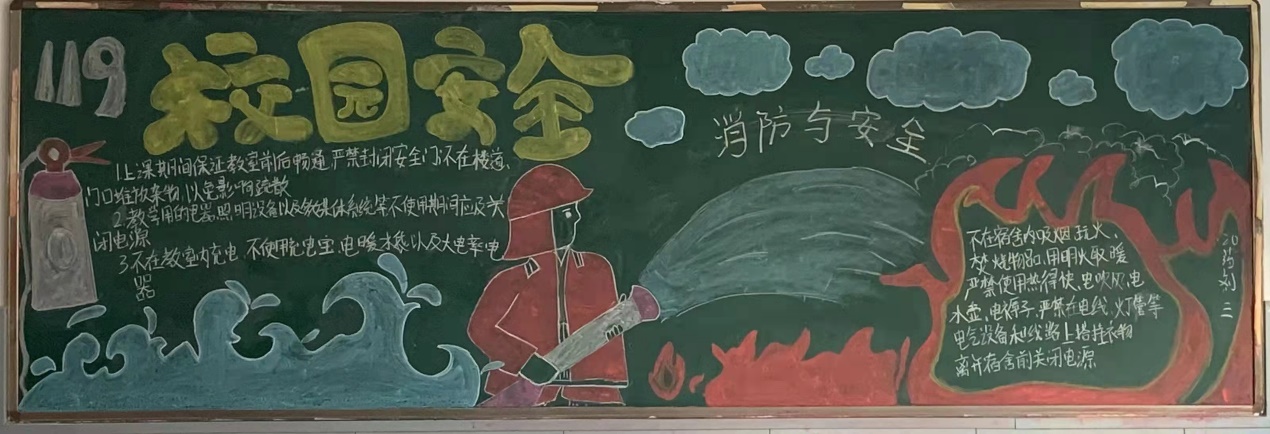 119
校园安全
消防与安全
1.上课期间保证教室前后畅通,严禁封闭安全门,不在楼道、
门口堆放杂物,以免影响疏散
2.教学用的电器照明设备以及多媒体系统等不使用期间应及关
闭电源
3.不在教室内充电 不使用充电宝,电暖水袋以及大电率电
器
不在宿舍内吸烟玩火、
焚烧物品,用明火取暖
严禁使用热得快,电吹风,电
水壶,电褥子,严禁在电线,灯管等
电气设备和线路上搭挂衣物
离开宿舍前关闭电源
20药剂二